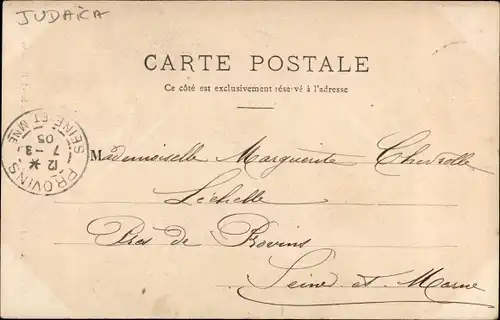 JUDAICA
CARTE POSTALE
Ce côté est exclusivement réservé à l'adresse
PROVINS SEINE ET MNE
12 *
7 -3
05
Mademoiselle Marguerite
Léchelle
Près de Provins
Seine et Marne